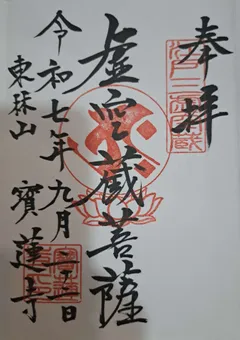 奉拝
虚空蔵菩薩
令和七年九月二三日
東珠山 寳蓮寺